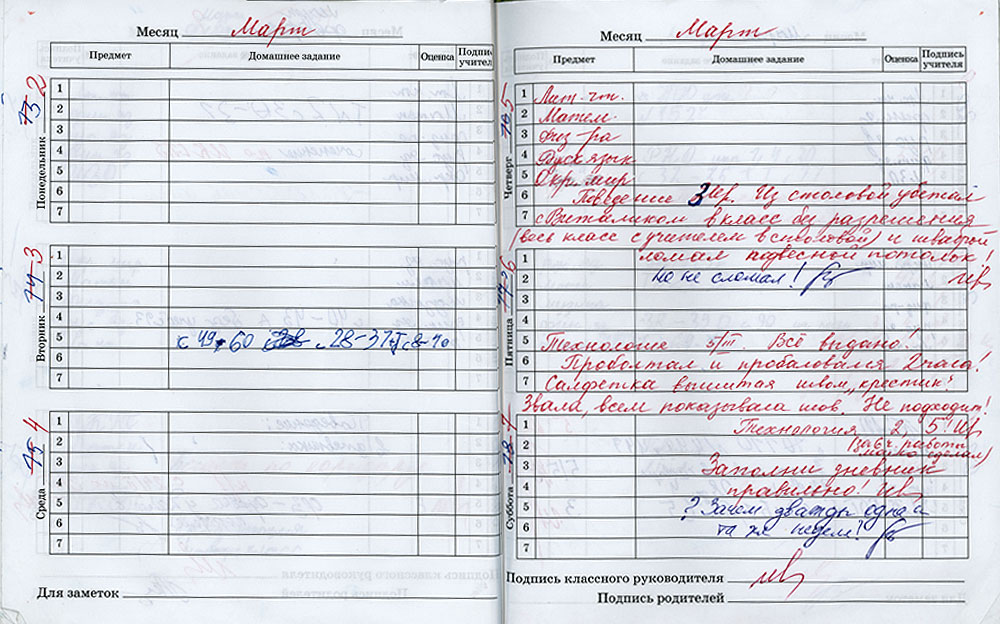 Месяц Март
Предмет Домашнее задание Оценка Подпись учителя
Понедельник 2
1
2
3
4
5
6
7
Вторник 3
1
2
3
4
5 с 49-60 с. 28-37 с 8-10
6
7
Среда 4
1
2
3
4
5
6
7
Для заметок
Месяц Март
Предмет Домашнее задание Оценка Подпись учителя
Четверг 5
1 Лит. чт.
2 Матем.
3 Физ-ра
4 Русск язык
5 Окр. мир
6 Поведение 3 Из столовой убежал
7 с Виталиком в класс без разрешения
(весь класс с учителем в столовой) и шваброй
Пятница 6
1 ломал подвесной потолок!
2 но не сломал!
3
4
5 Технология 5/III. Всё выдано!
6 Проболтал и пробаловался 2 часа!
7 Салфетка вышитая швом "крестик".
Звала, всем показывала шов. Не подходит!
Суббота 7
1 Технология 2, 5!
2 (за 6 ч. работы мало сделал)
3 Заполни дневник
4 правильно!
5 ? Зачем дважды одна и
6 та же неделя?
7
Подпись классного руководителя
Подпись родителей